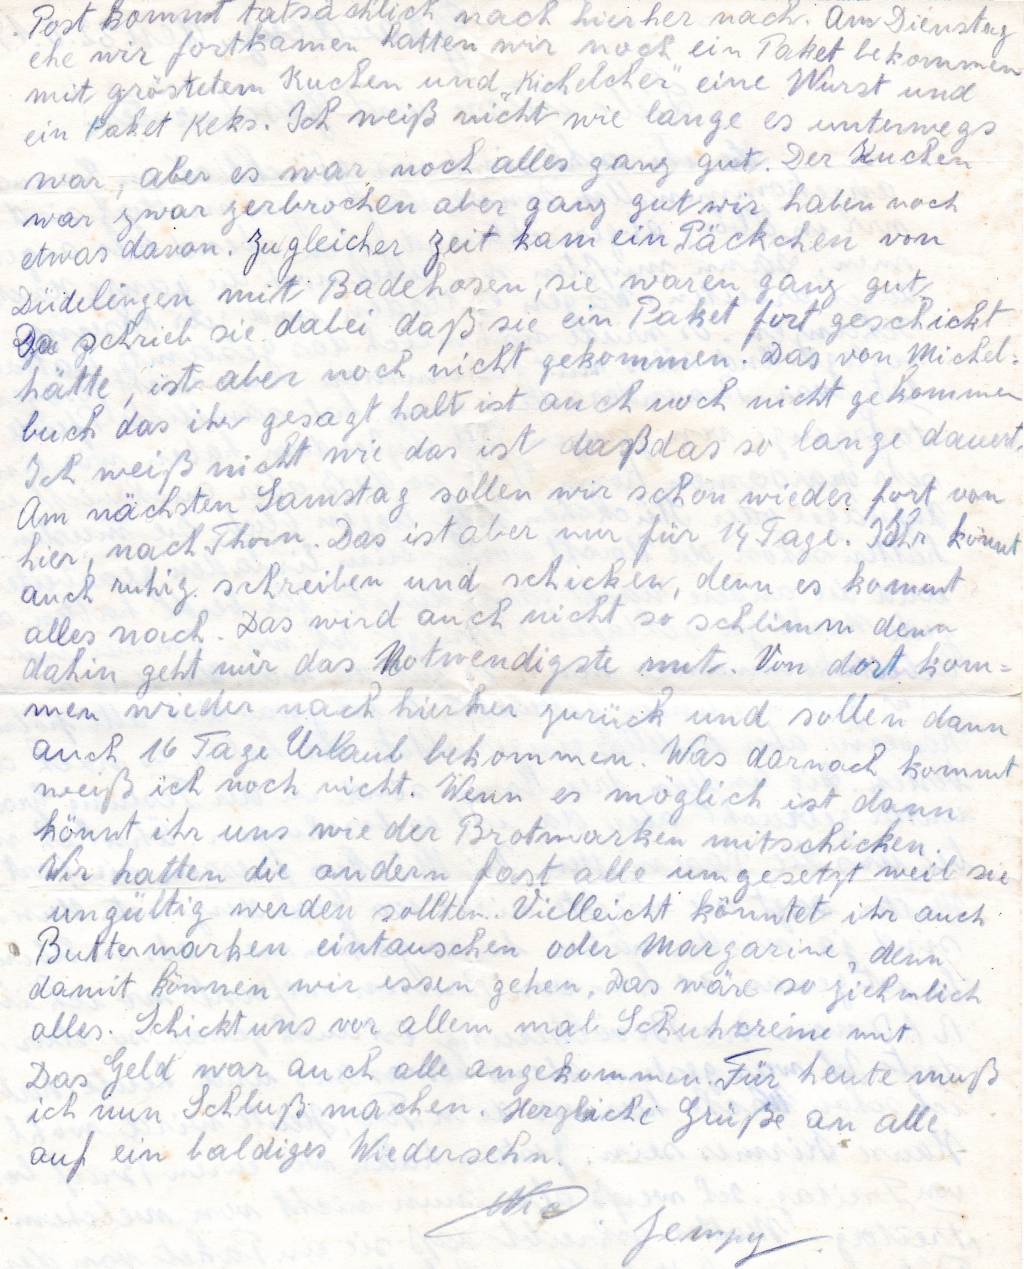 Post kommt tatsächlich nach hierher nach. Am Dienstag
ehe wir fortkamen hatten wir noch ein Paket bekommen
mit gröstetem Kuchen und „Kichelcher" eine Wurst und
ein Paket Keks. Ich weiß nicht wie lange es unterwegs
war, aber es war noch alles ganz gut. Der Kuchen
war zwar zerbrochen aber ganz gut wir haben noch
etwas davon. Zu gleicher Zeit kam ein Päckchen von
Düdelingen mit Badehosen, sie waren ganz gut,
Da schrieb sie dabei daß sie ein Paket fort geschickt
hatte, ist aber noch nicht gekommen. Das von Michel-
buch das ihr gesagt halt ist auch noch nicht gekommen
Ich weiß nicht wie das ist daß das so lange dauert.
Am nächsten Samstag sollen wir schon wieder fort von
hier, nach Thorn. Das ist aber nur für 14 Tage. Ihr könnt
auch ruhig schreiben und schicken, denn es kommt
alles nach. Das wird auch nicht so schlimm denn
dahin geht nur das Notwendigste mit. Von dort kom=
men wieder nach hierher zurück und sollen dann
auch 16 Tage Urlaub bekommen. Was darnach kommt
weiß ich noch nicht. Wenn es möglich ist dann
könnt ihr uns wieder Brotmarken mitschicken.
Wir hatten die andern fast alle umgesetzt weil sie
ungültig werden sollten. Vielleicht könntet ihr auch
Buttermarken eintauschen oder Margarine, denn
damit können wir essen gehen. Das wäre so ziehmlich
alles. Schickt uns vor allem mal Schuhkreme mit
Das Geld war auch alle angekommen. Für heute muß
ich nun Schluß machen. Herzliche Grüße an alle
auf ein baldiges Wiedersehn.
Nic Jempy